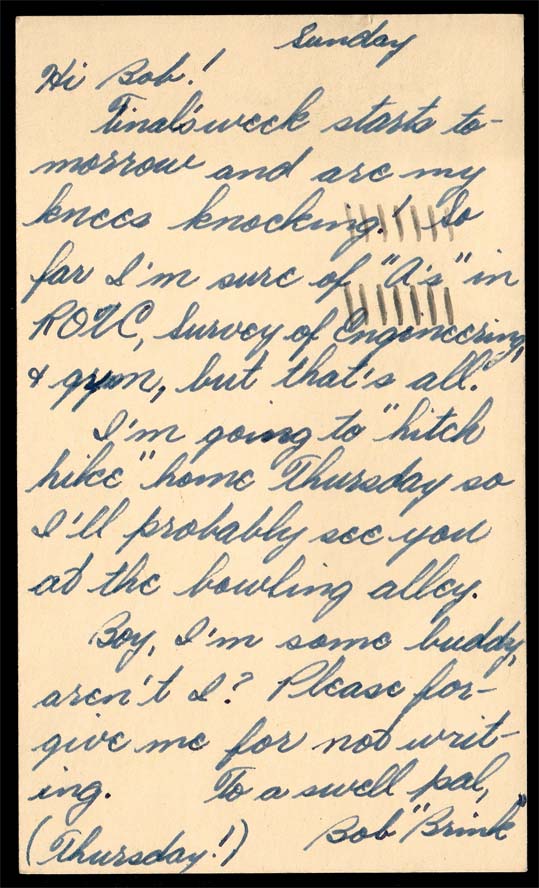 Sunday
Hi Bob!
Final's week starts to-
morrow and are my
knees knocking! So
far I'm sure of "A's" in
ROTC, Survey of Engineering,
& gym, but that's all.
I'm going to "hitch
hike" home Thursday so
I'll probably see you
at the bowling alley.
Boy, I'm some buddy,
aren't I? Please for-
give me for not writ-
ing. To a swell pal,
(Thursday!) Bob "Brink"